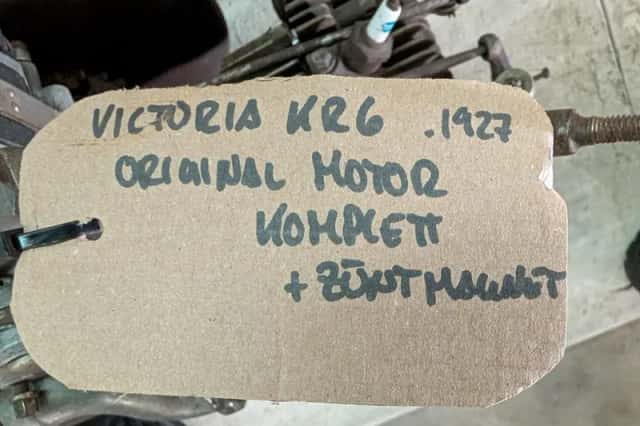 VICTORIA KR6 .1927
ORIGINAL MOTOR
KOMPLETT
+ ZÜNTMAGNET